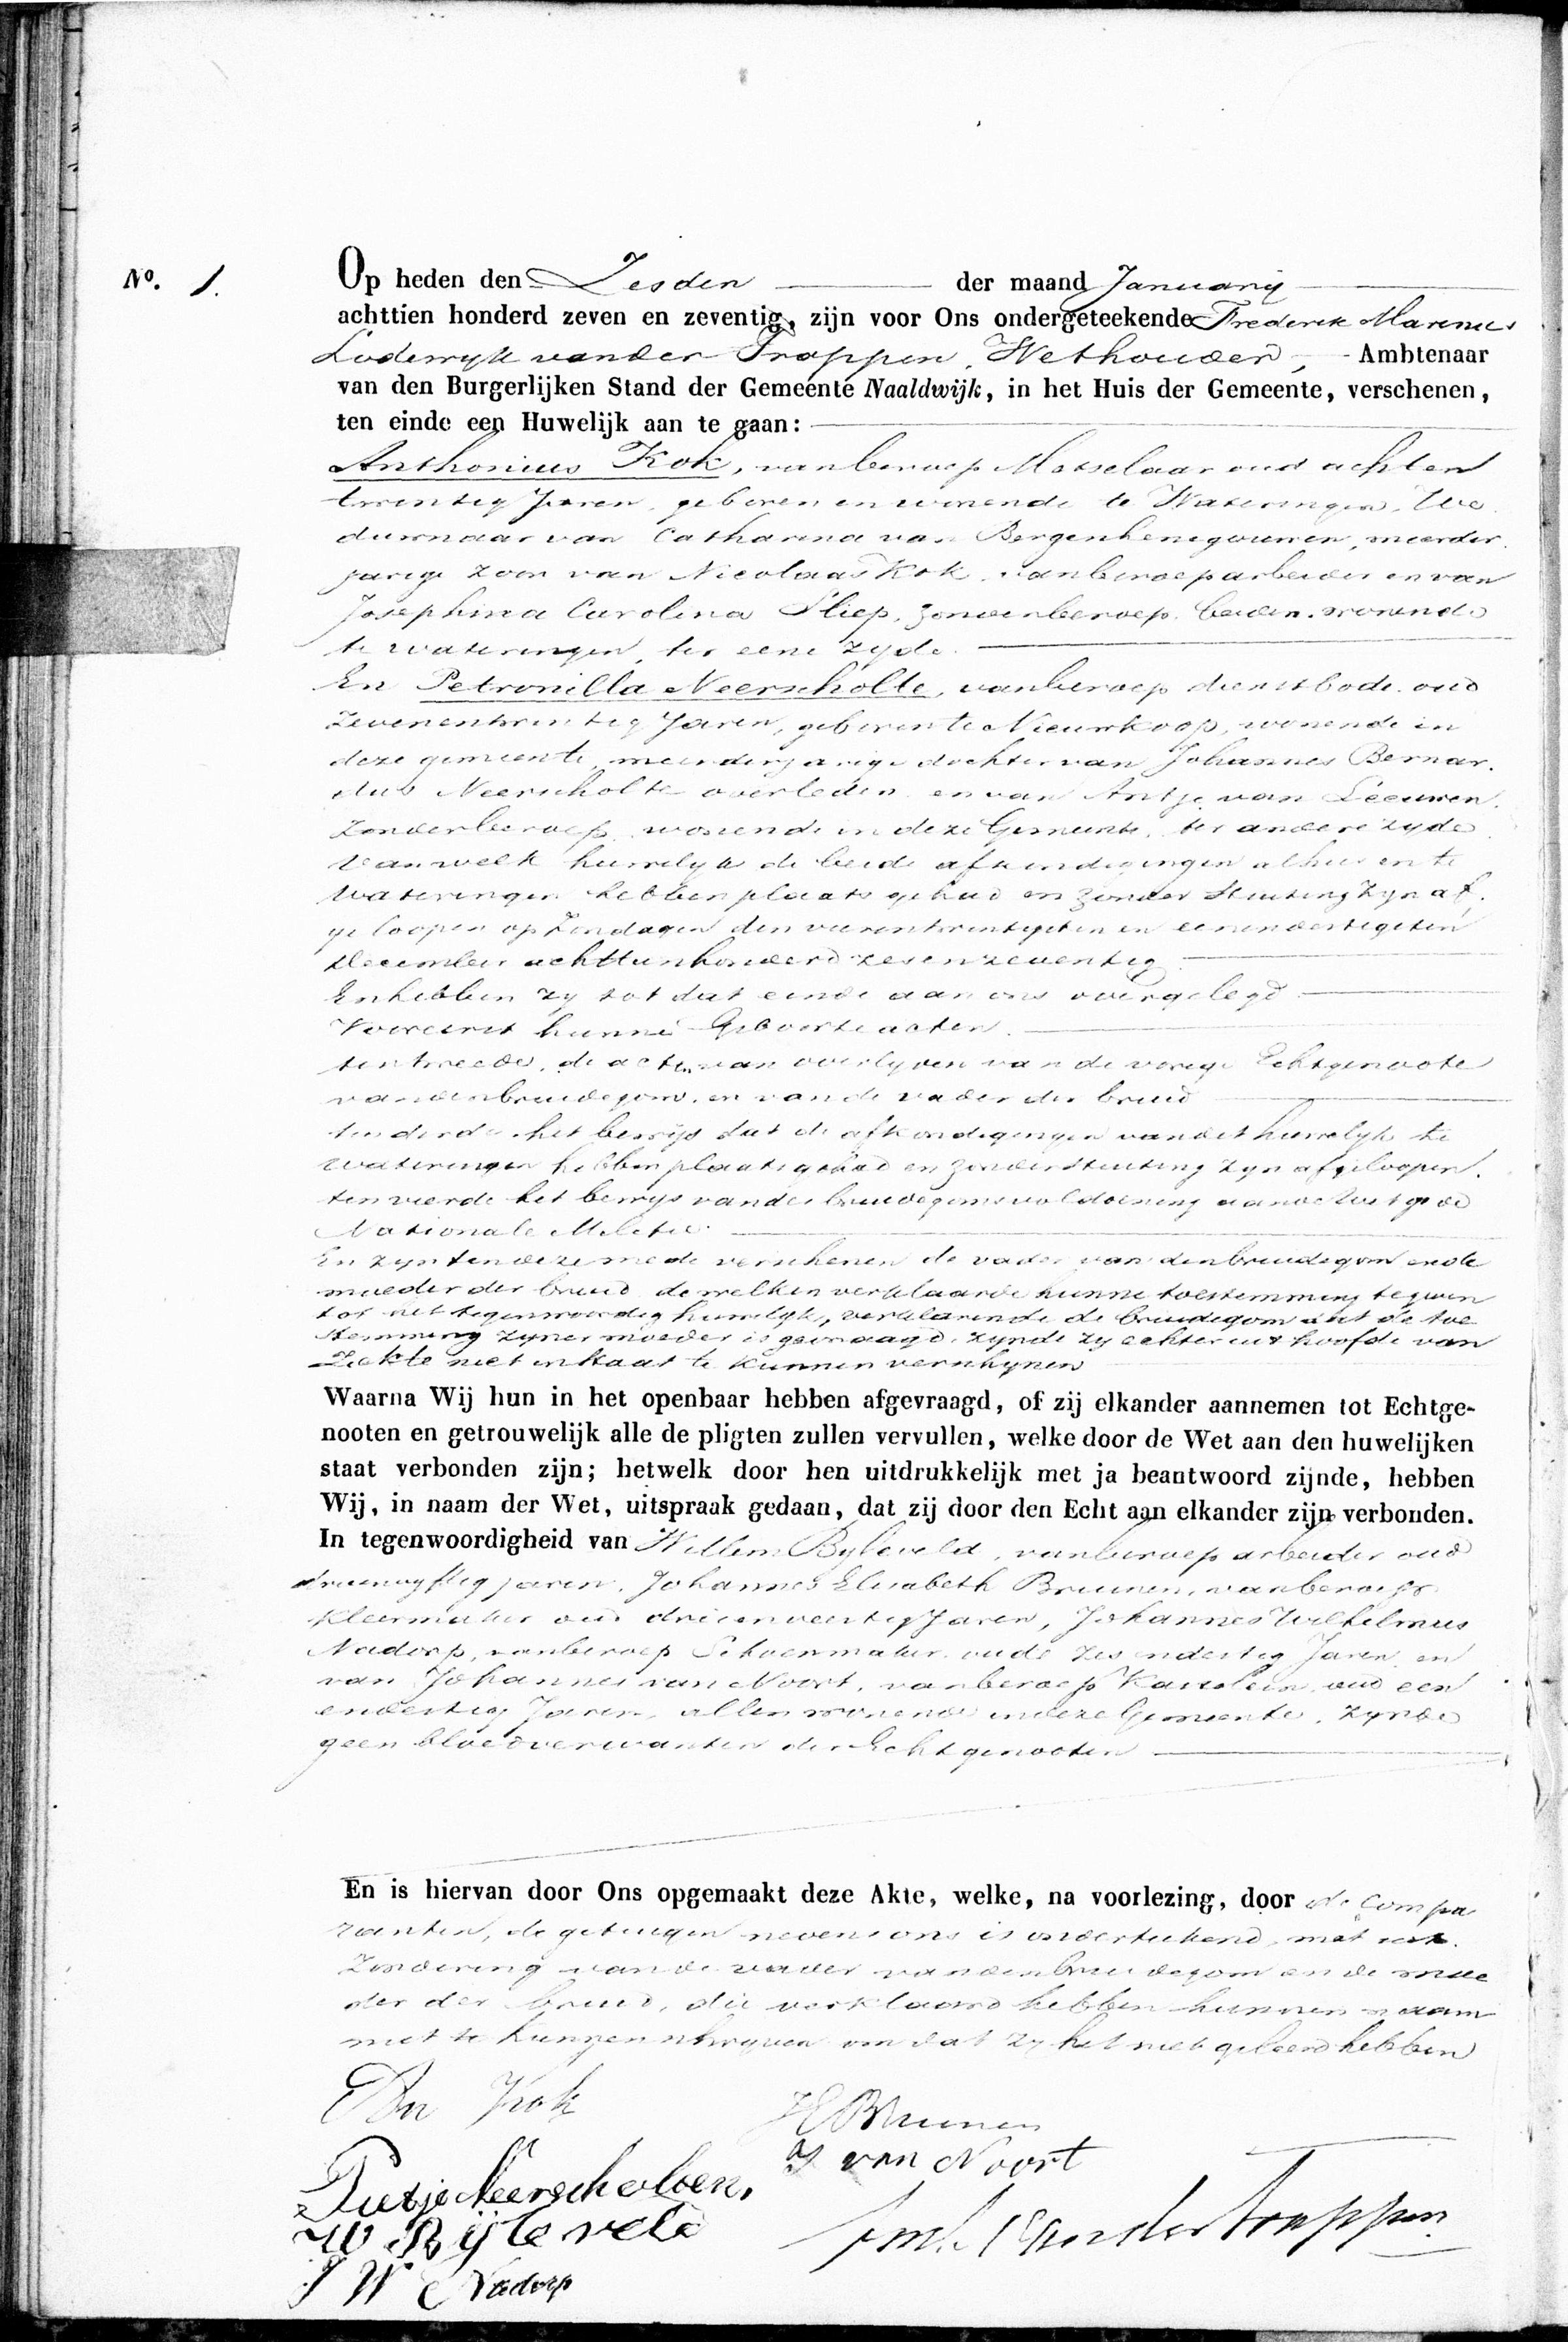 No. 1.
Op heden den Zesden der maand Januarij
achttien honderd zeven en zeventig, zijn voor Ons ondergeteekende Frederik Marinus
Lodewyk vander Trappen, Wethouder, Ambtenaar
van den Burgerlijken Stand der Gemeente Naaldwijk, in het Huis der Gemeente, verschenen,
ten einde een Huwelijk aan te gaan:
Anthonius Kok, van beroep Metselaar oud achten
twintig Jaren, geboren en wonende te Wateringen, We
duwnaar van Catharina van Bergenhenegouwen, meerder
jarige zoon van Nicolaas Kok, van beroep arbeider en van
Josephina Carolina Sliep, zonder beroep, beiden wonende
te wateringen, ter eene zyde.
En Petronilla Neerscholte, van beroep dienstbode, oud
zevenentwintig Jaren, geboren te Nieuwkoop, wonende in
deze gemeente, meerderjarige dochter van Johannes Bernar.
dus Neerscholte overleden en van Antje van Leeuwen,
zonder beroep, wonende in deze Gemeente, ter andere zyde
van welk huwelyk de beide afkondigingen alhier en te
wateringen hebben plaats gehad en zonder stuiting zyn af.
geloopen op Zondagen den vierentwintigsten en eenendertigsten
December achttienhonderd zesenzeventig
En hebben zy tot dat einde aan ons overgelegd
Vooreerst hunne Geboorteacten.
ten tweede, de acten van overlyden van de vorige Echtgenoote
van den bruidegom, en van de vader der bruid
ten derde het bewys dat de afkondigingen van dit huwelyk te
wateringen hebben plaats gehad en zonder stuiting zyn afgeloopen.
ten vierde het bewys van des bruidegoms voldoening aan de Wet op de
Nationale Militie.
En zyn ten deze mede verschenen de vader van den bruidegom en de
moeder der bruid, dewelken verklaarde hunne toestemming te geven
tot het tegenwoordig huwelyk, verklarende de bruidegom dat de toe
stemming zyner moeder is gevraagd, zynde zy echter uit hoofde van
Ziekte niet in staat te kunnen verschynen
Waarna Wij hun in het openbaar hebben afgevraagd, of zij elkander aannemen tot Echtge-
nooten en getrouwelijk alle de pligten zullen vervullen, welke door de Wet aan den huwelijken
staat verbonden zijn; hetwelk door hen uitdrukkelijk met ja beantwoord zijnde, hebben
Wij, in naam der Wet, uitspraak gedaan, dat zij door den Echt aan elkander zijn verbonden.
In tegenwoordigheid van Willem Byleveld, van beroep arbeider oud
drieenvyftig jaren, Johannes Elisabeth Bruinen, van beroep
Kleermaker oud drieenveertig Jaren, Johannes Wilhelmus
Nadorp, van beroep Schoenmaker, oude zesendertig Jaren, en
van Johannes van Noort, van beroep Kastelein, oud een
endertig Jaren, allen wonende in deze Gemeente, zynde
geen bloedverwanten der Echtgenooten
En is hiervan door Ons opgemaakt deze Akte, welke, na voorlezing, door de Compa
ranten, de getuigen nevens ons is onderteekend, met uit.
zondering van de vader van den bruidegom en de moe
der der bruid, die verklaard hebben hunnen naam
niet te kunnen schryven om dat zy het niet geleerd hebben
An Kok
Pietje Neerscholten,
W Bijleveld
J W Nadorp
J E Bruinen
J van Noort
fml vander Trappen